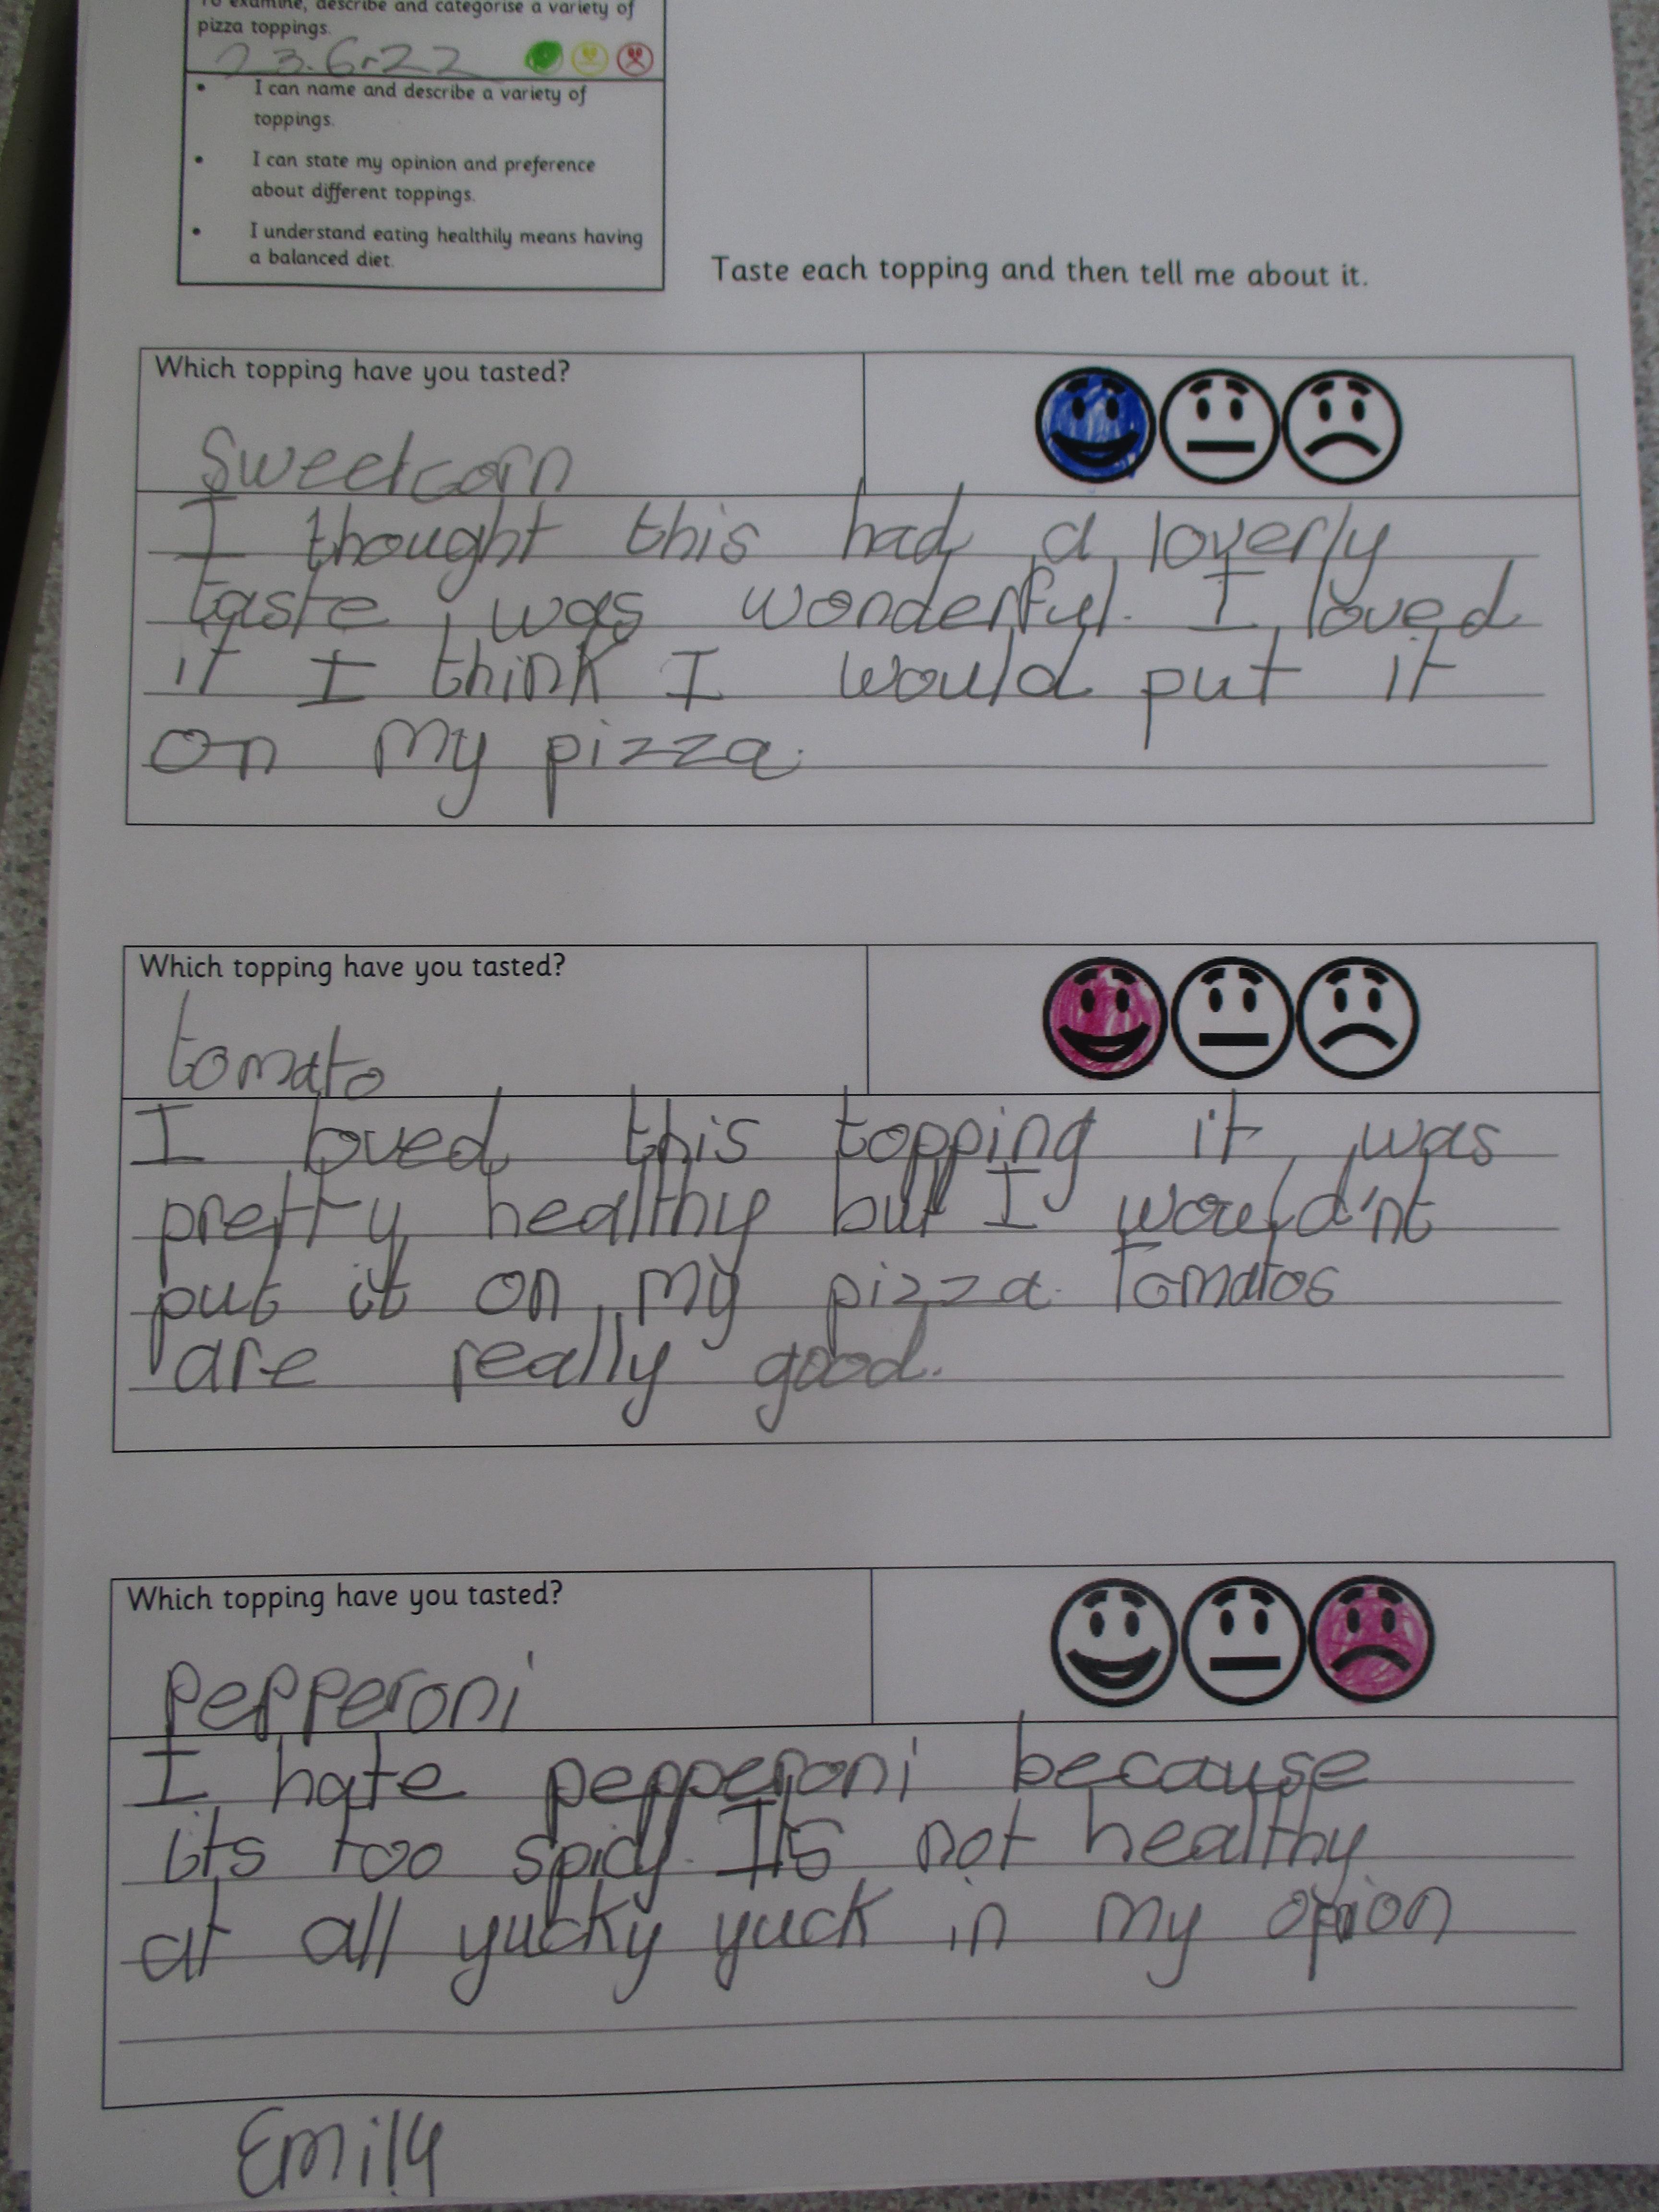 To examine, describe and categorise a variety of
pizza toppings.
23.6.22
• I can name and describe a variety of
toppings.
• I can state my opinion and preference
about different toppings.
• I understand eating healthily means having
a balanced diet.
Taste each topping and then tell me about it.
Which topping have you tasted?
Sweetcorn
I thought this had a loverly
taste, was wonderful. I loved
it I think I would put it
on my pizza.
Which topping have you tasted?
tomato
I loved this topping it was
pretty healthy but I would'nt
put it on my pizza. Tomatos
are really good.
Which topping have you tasted?
Pepperoni
I hate pepperoni because
its too spicy. Its not healthy
at all yucky yuck in my opnion
Emily